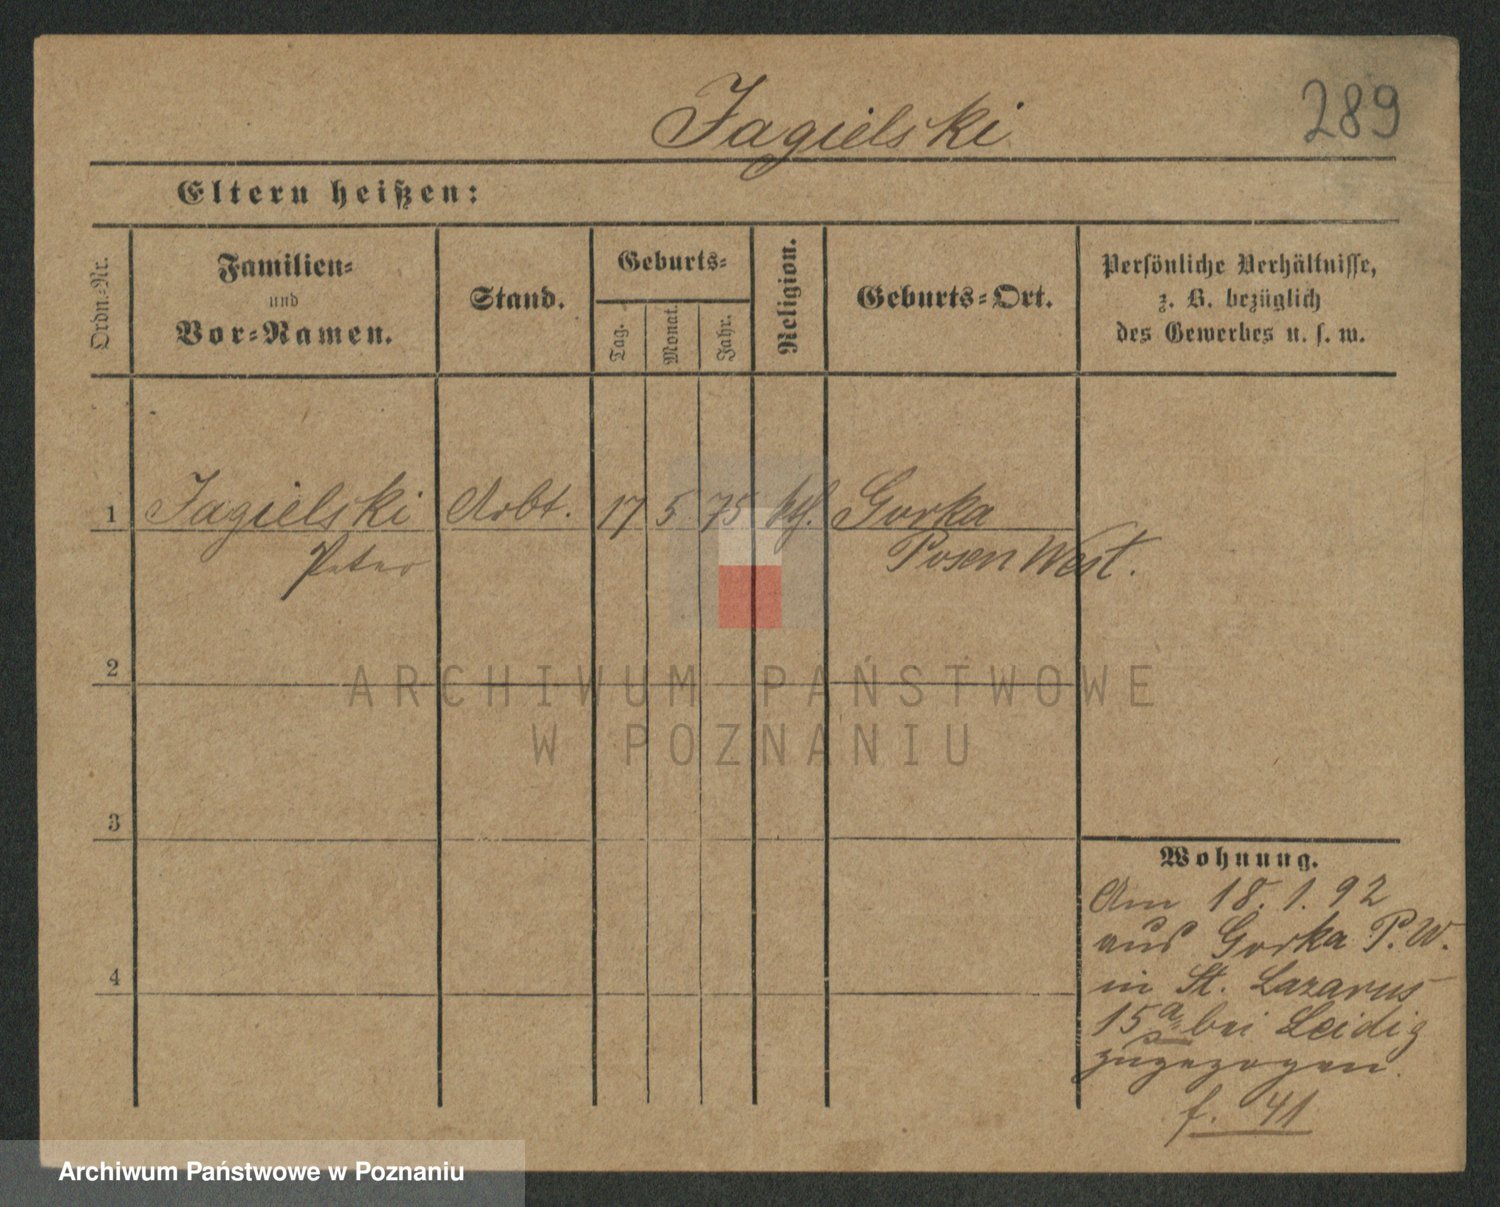 Jagielski
289
Eltern heißen:
Ordn.-Nr.
Familien-
und
Vor-Namen.
Stand.
Geburts-
Tag.
Monat.
Jahr.
Religion.
Geburts-Ort.
Persönliche Verhältnisse,
z. B. bezüglich
des Gewerbes u. s. w.
1 Jagielski Arbt. 17 5 75 kth. Gorka
Peter Posen West.
2
ARCHIWUM PAŃSTWOWE
W POZNANIU
3
Wohnung.
Am 18. 1. 92
aus Gorka P. W.
4
in St. Lazarus
15a bei Leidig
zugezogen.
f. 41
Archiwum Państwowe w Poznaniu